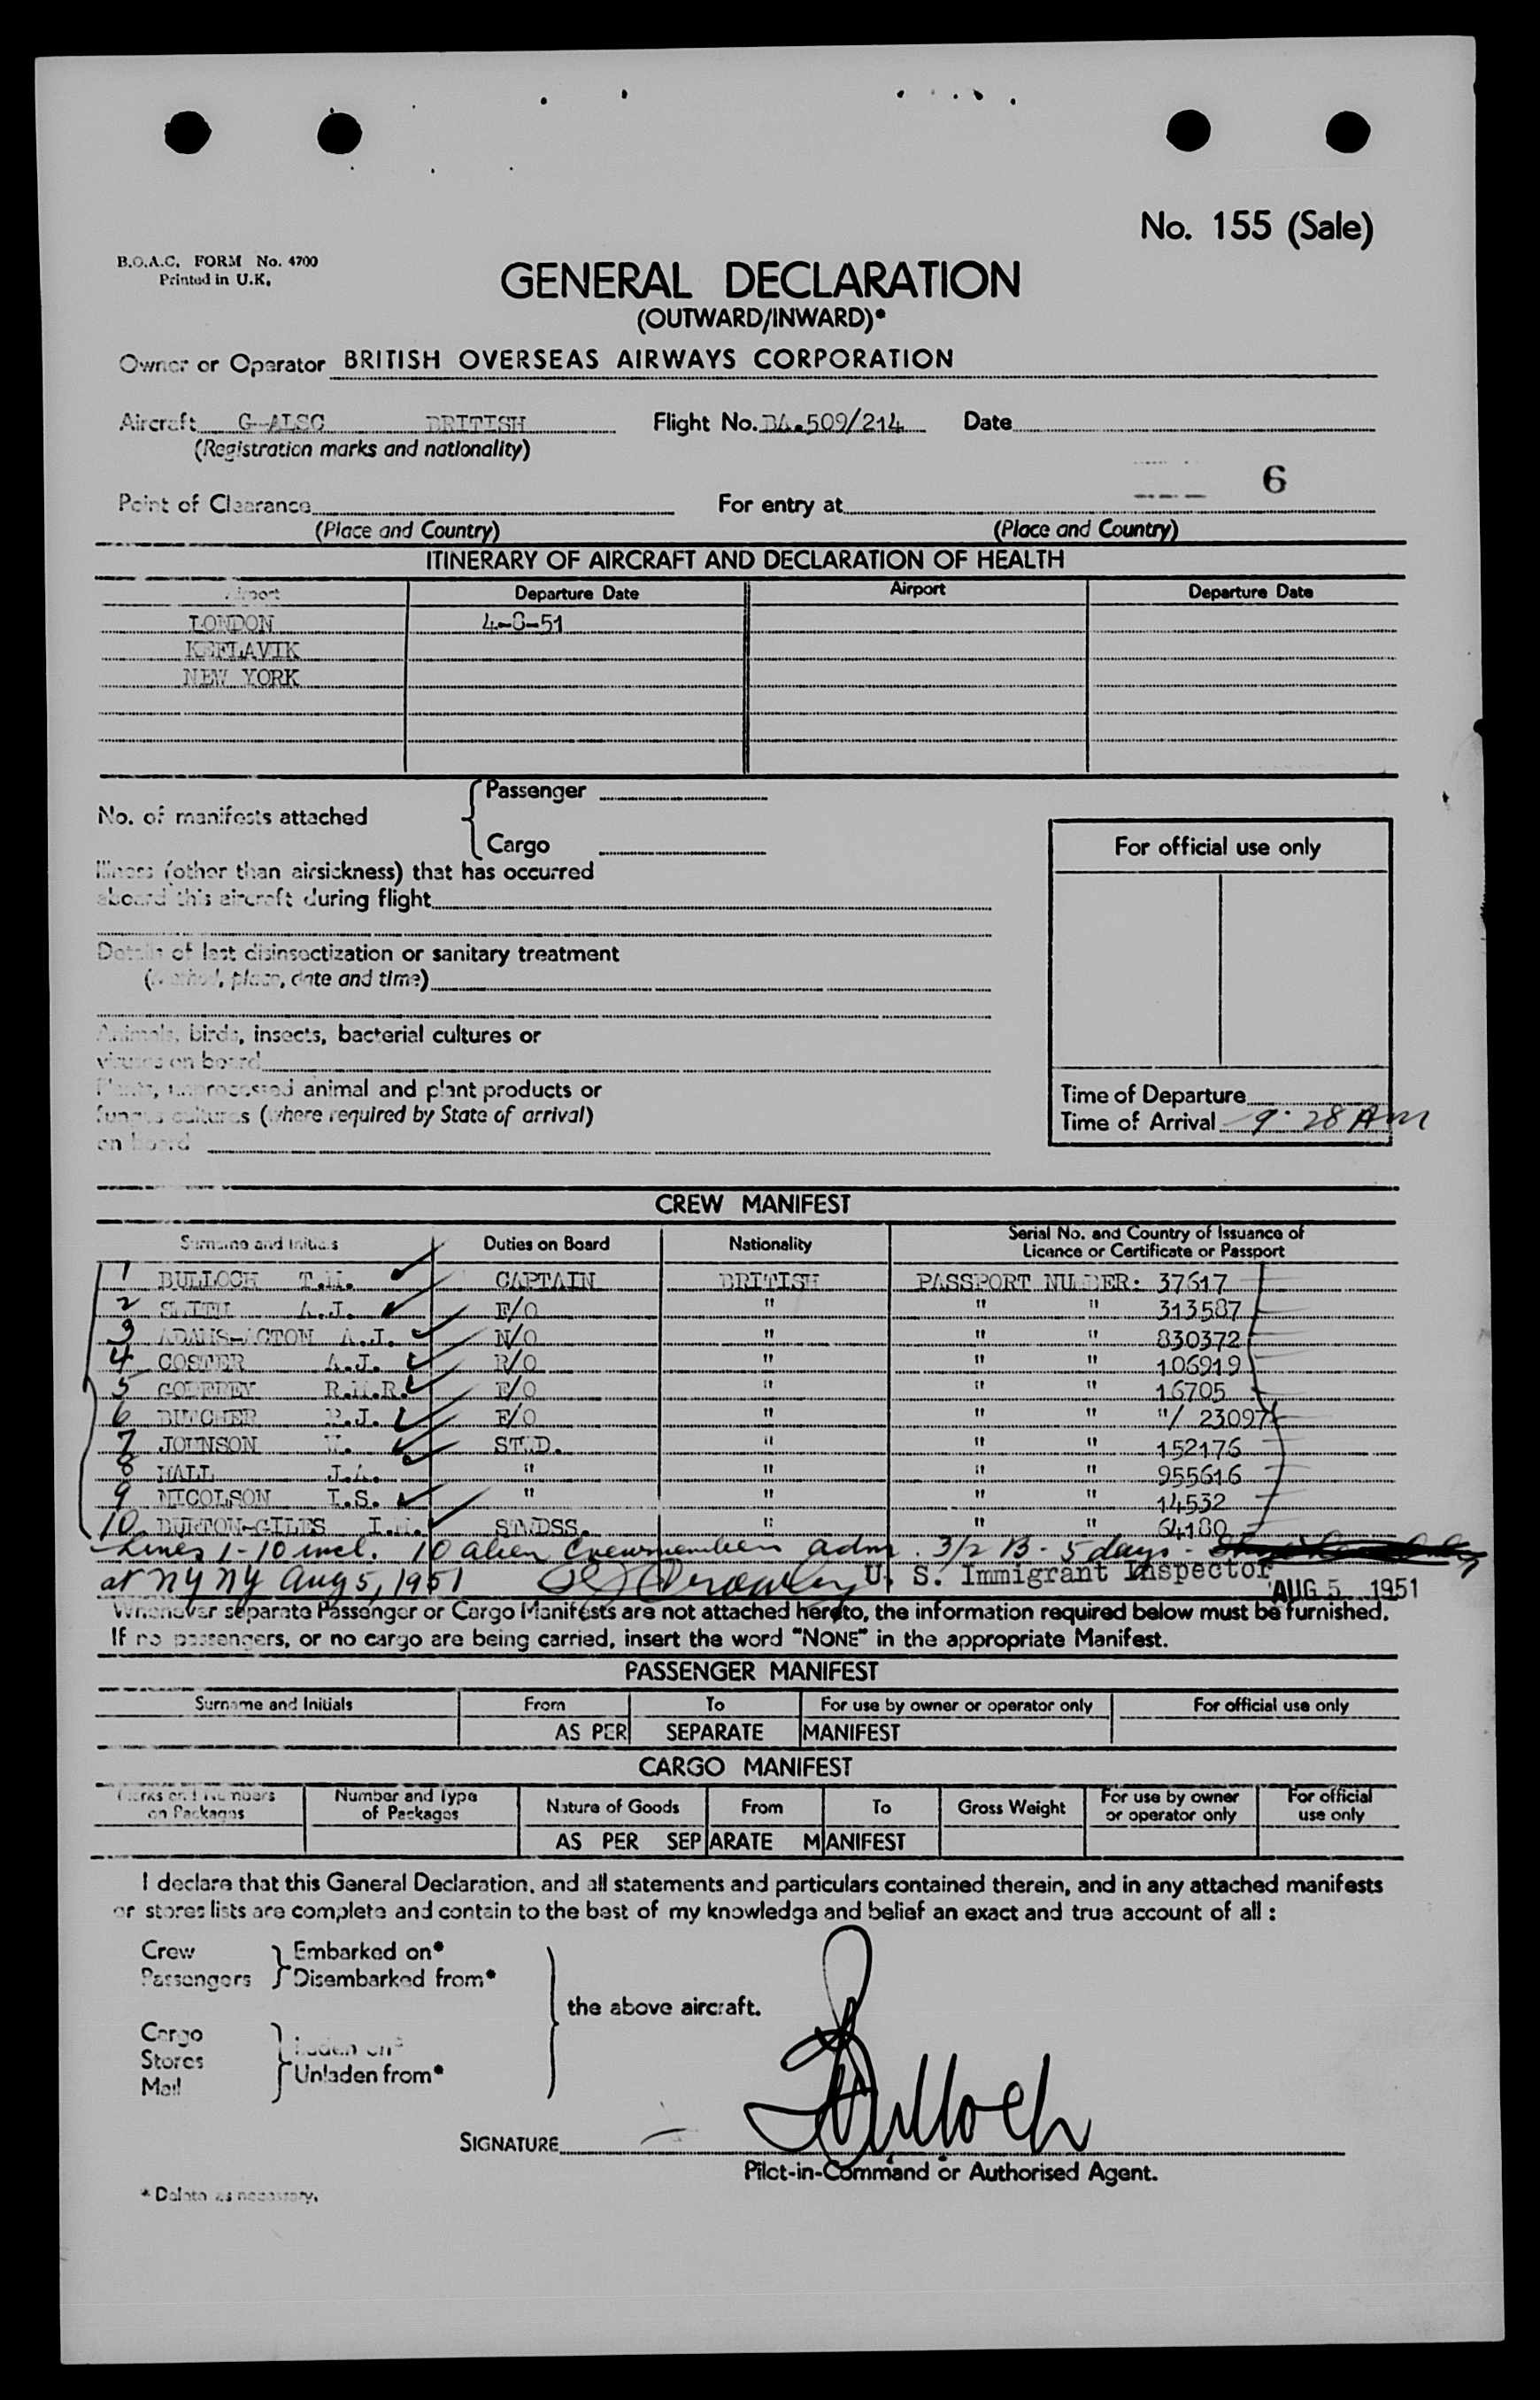 No. 155 (Sale)
B.O.A.C. FORM No. 4700
Printed in U.K.
GENERAL DECLARATION
(OUTWARD/INWARD)*
Owner or Operator BRITISH OVERSEAS AIRWAYS CORPORATION
Aircraft G-ALSC BRITISH Flight No. BA.509/214 Date
(Registration marks and nationality)
6
Point of Clearance For entry at
(Place and Country) (Place and Country)
ITINERARY OF AIRCRAFT AND DECLARATION OF HEALTH
Airport Departure Date Airport Departure Date
LONDON 4-8-51
KEFLAVIK
NEW YORK
No. of manifests attached Passenger
Cargo
For official use only
Illness (other than airsickness) that has occurred
aboard this aircraft during flight
Details of last disinsectization or sanitary treatment
(Method, place, date and time)
Animals, birds, insects, bacterial cultures or
viruses on board
Plants, unprocessed animal and plant products or
fungus cultures (where required by State of arrival)
on board
Time of Departure
Time of Arrival 9:28 AM
CREW MANIFEST
Surname and Initials Duties on Board Nationality Serial No. and Country of Issuance of
Licence or Certificate or Passport
1 BULLOCH T.M. CAPTAIN BRITISH PASSPORT NUMBER: 37617
2 SMITH A.J. F/O " " " 313587
3 ADAMS-ACTON A.J. N/O " " " 830372
4 COSTER A.J. R/O " " " 106919
5 GODFREY R.M.R. E/O " " " 16705
6 BUTCHER P.J. E/O " " " "/ 23097
7 JOHNSON W. STWD. " " " 152176
8 HALL J.A. " " " " 955616
9 NICOLSON I.S. " " " " 14532
10 BURTON-GILES I.M. STWDSS. " " " 64180
Lines 1-10 incl. 10 alien crewmembers adm. 3/2 B - 5 days -
at NY NY Aug 5, 1951 U. S. Immigrant Inspector AUG 5 1951
Whenever separate Passenger or Cargo Manifests are not attached hereto, the information required below must be furnished.
If no passengers, or no cargo are being carried, insert the word "NONE" in the appropriate Manifest.
PASSENGER MANIFEST
Surname and Initials From To For use by owner or operator only For official use only
AS PER SEPARATE MANIFEST
CARGO MANIFEST
Marks and Numbers on Packages Number and Type of Packages Nature of Goods From To Gross Weight For use by owner or operator only For official use only
AS PER SEPARATE MANIFEST
I declare that this General Declaration, and all statements and particulars contained therein, and in any attached manifests
or stores lists are complete and contain to the best of my knowledge and belief an exact and true account of all :
Crew Embarked on*
Passengers Disembarked from*
the above aircraft.
Cargo Laden on*
Stores
Mail Unladen from*
SIGNATURE Bulloch
Pilot-in-Command or Authorised Agent.
* Delete as necessary.